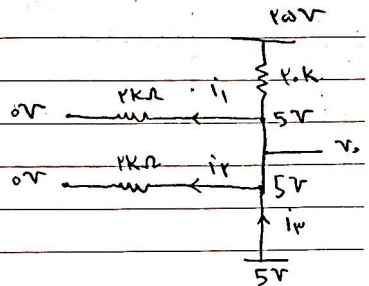 ۲۵V
۲۰k
۲KΩ i₁
0V 5V
V۰
۲KΩ i۲
0V 5V
i۳
5V